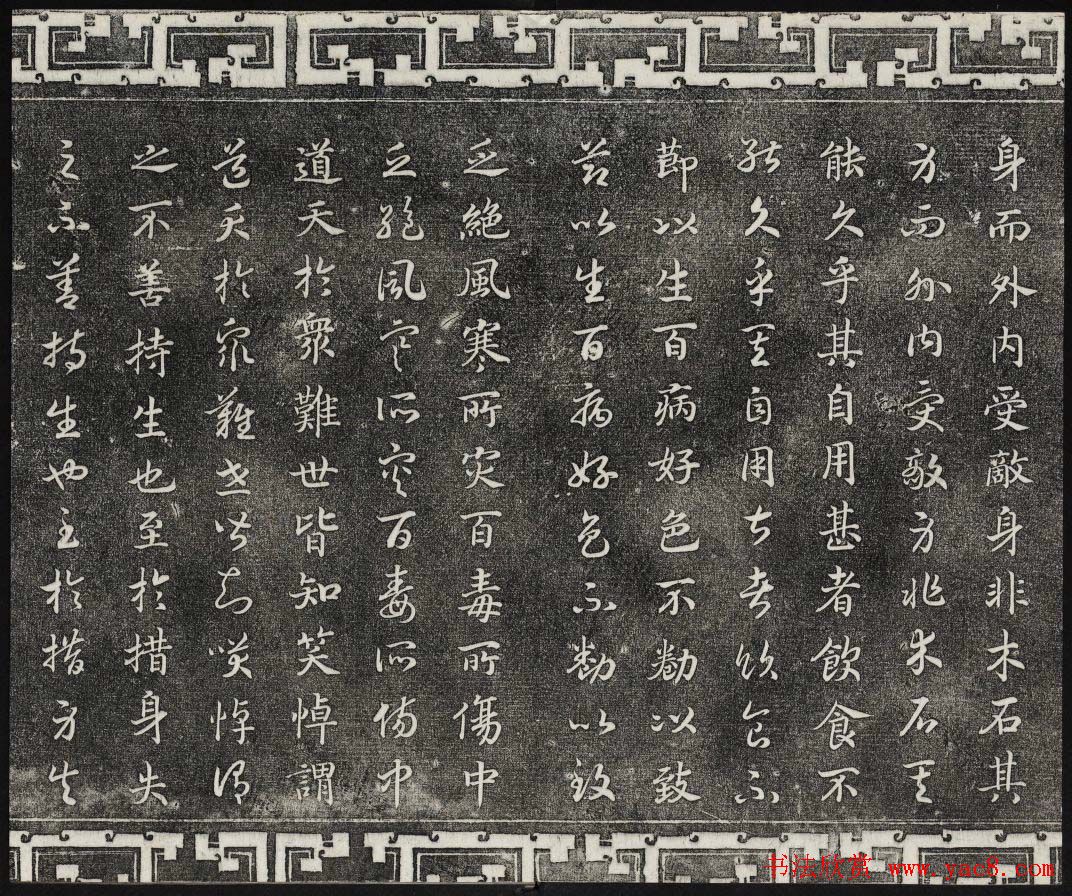 身而外内受敵身非木石其
身而外内受敵身非木石其
能久乎其自用甚者飲食不
能久乎其自用甚者飲食不
節以生百病好色不勌以致
節以生百病好色不勌以致
乏絶風寒所災百毒所傷中
乏絶風寒所災百毒所傷中
道夭於衆難世皆知笑悼謂
道夭於衆難世皆知笑悼謂
之不善持生也至於措身失
之不善持生也至於措身失
书法欣赏 www.yac8.com